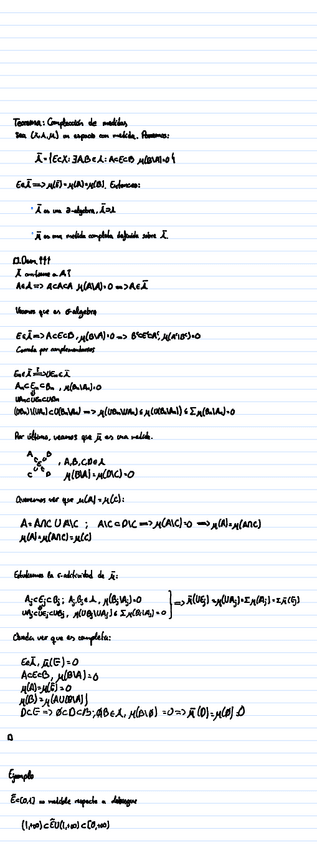 Teorema: Completación de medidas
Sea (X,λ,μ) un espacio con medida. Ponemos:
λ̄ = {E⊂X: ∃A,B∈λ: A⊂E⊂B μ(B\A)=0}
E∈λ̄ => μ̄(E)=μ(A)=μ(B). Entonces:
· λ̄ es una σ-álgebra, λ̄⊃λ
· μ̄ es una medida completa definida sobre λ̄.
□ Dem. †††
λ̄ contiene a λ?
A∈λ => A⊂A⊂A μ(A\A)=0 => A∈λ̄
Veamos que es σ-algebra
E∈λ̄ => A⊂E⊂B, μ(B\A)=0 => Bᶜ⊂Eᶜ⊂Aᶜ, μ(Aᶜ\Bᶜ)=0
Cerrada por complementarios
Eₙ∈λ̄ => UEₙ∈λ̄
Aₙ⊂Eₙ⊂Bₙ, μ(Bₙ\Aₙ)=0
UAₙ⊂UEₙ⊂UBₙ
(UBₙ)\(UAₙ)⊂U(Bₙ\Aₙ) => μ(UBₙ\UAₙ)≤μ(U(Bₙ\Aₙ))≤Σμ(Bₙ\Aₙ)=0
Por último, veamos que μ̄ es una medida.
A B
E , A,B,C,D∈λ
C D μ(B\A)=μ(D\C)=0
Queremos ver que μ(A)=μ(C):
A=A∩C∪A\C ; A\C⊂D\C => μ(A\C)=0 => μ(A)=μ(A∩C)
μ(A)=μ(A∩C)=μ(C)
Estudiemos la σ-aditividad de μ̄:
Aⱼ⊂Eⱼ⊂Bⱼ; Aⱼ,Bⱼ∈λ, μ(Bⱼ\Aⱼ)=0 } => μ̄(UEⱼ)=μ(UAⱼ)=Σμ(Aⱼ)=Σμ̄(Eⱼ)
UAⱼ⊂UEⱼ⊂UBⱼ, μ(UBⱼ\UAⱼ)≤Σμ(Bⱼ\Aⱼ)=0
Queda ver que es completa:
E∈λ̄, μ̄(E)=0
A⊂E⊂B, μ(B\A)=0
μ(A)=μ̄(E)=0
μ(B)=μ(A∪(B\A))
D⊂E => ∅⊂D⊂B; ∅,B∈λ, μ(B\∅)=0 => μ̄(D)=μ(∅)=0
□
Ejemplo
Ẽ=[0,1] no medible respecto a Lebesgue
(1,+∞)⊂Ẽ∪(1,+∞)⊂[0,+∞)